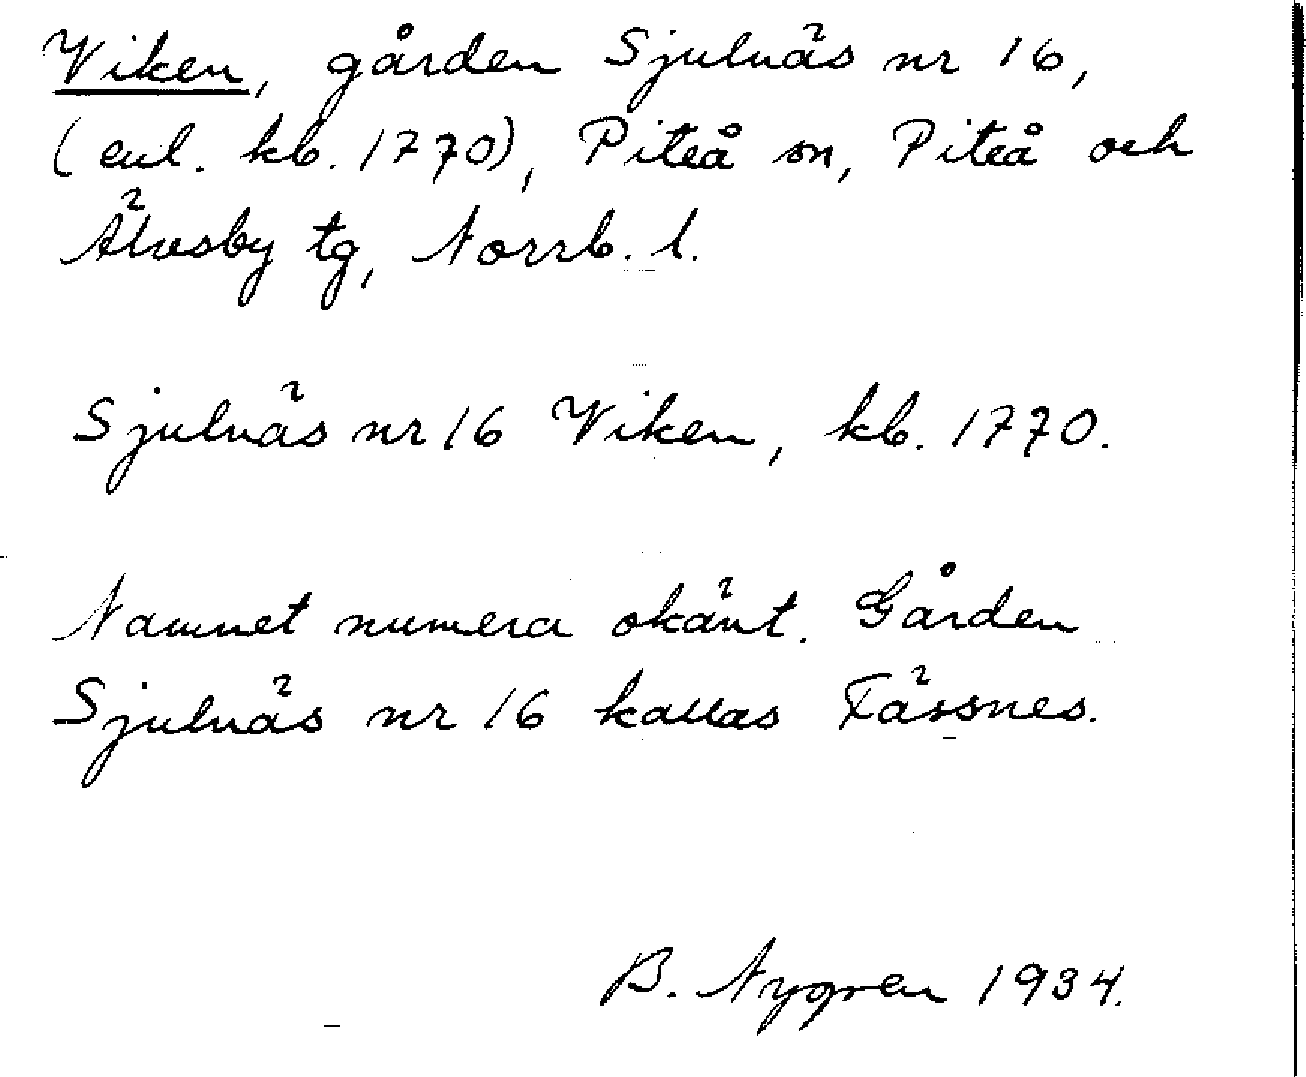 Viken, gården Sjulnäs nr 16,
(enl. kb. 1770), Piteå sn, Piteå och
Älvsby tg, Norrb. l.
Sjulnäs nr 16 Viken, kb. 1770.
Namnet numera okänt. Gården
Sjulnäs nr 16 kallas Färsnes.
B. Nygren 1934.